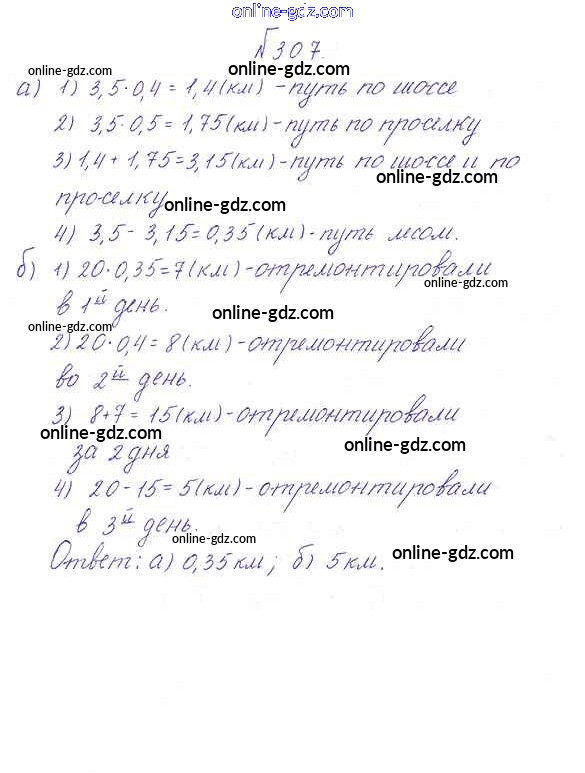 online-gdz.com
№307.
online-gdz.com online-gdz.com
а) 1) 3,5·0,4=1,4(км)-путь по шоссе
2) 3,5·0,5=1,75(км)-путь по проселку
online-gdz.com
3) 1,4+1,75=3,15(км)-путь по шоссе и по
online-gdz.com
проселку
online-gdz.com
4) 3,5-3,15=0,35(км)-путь лесом.
б) 1) 20·0,35=7(км)-отремонтировали
online-gdz.com
в 1й день.
online-gdz.com
online-gdz.com
2) 20·0,4=8(км)-отремонтировали
во 2й день.
3) 8+7=15(км)-отремонтировали
online-gdz.com online-gdz.com
за 2 дня
4) 20-15=5(км)-отремонтировали
в 3й день.
online-gdz.com
Ответ: а) 0,35км; б) 5км.
online-gdz.com